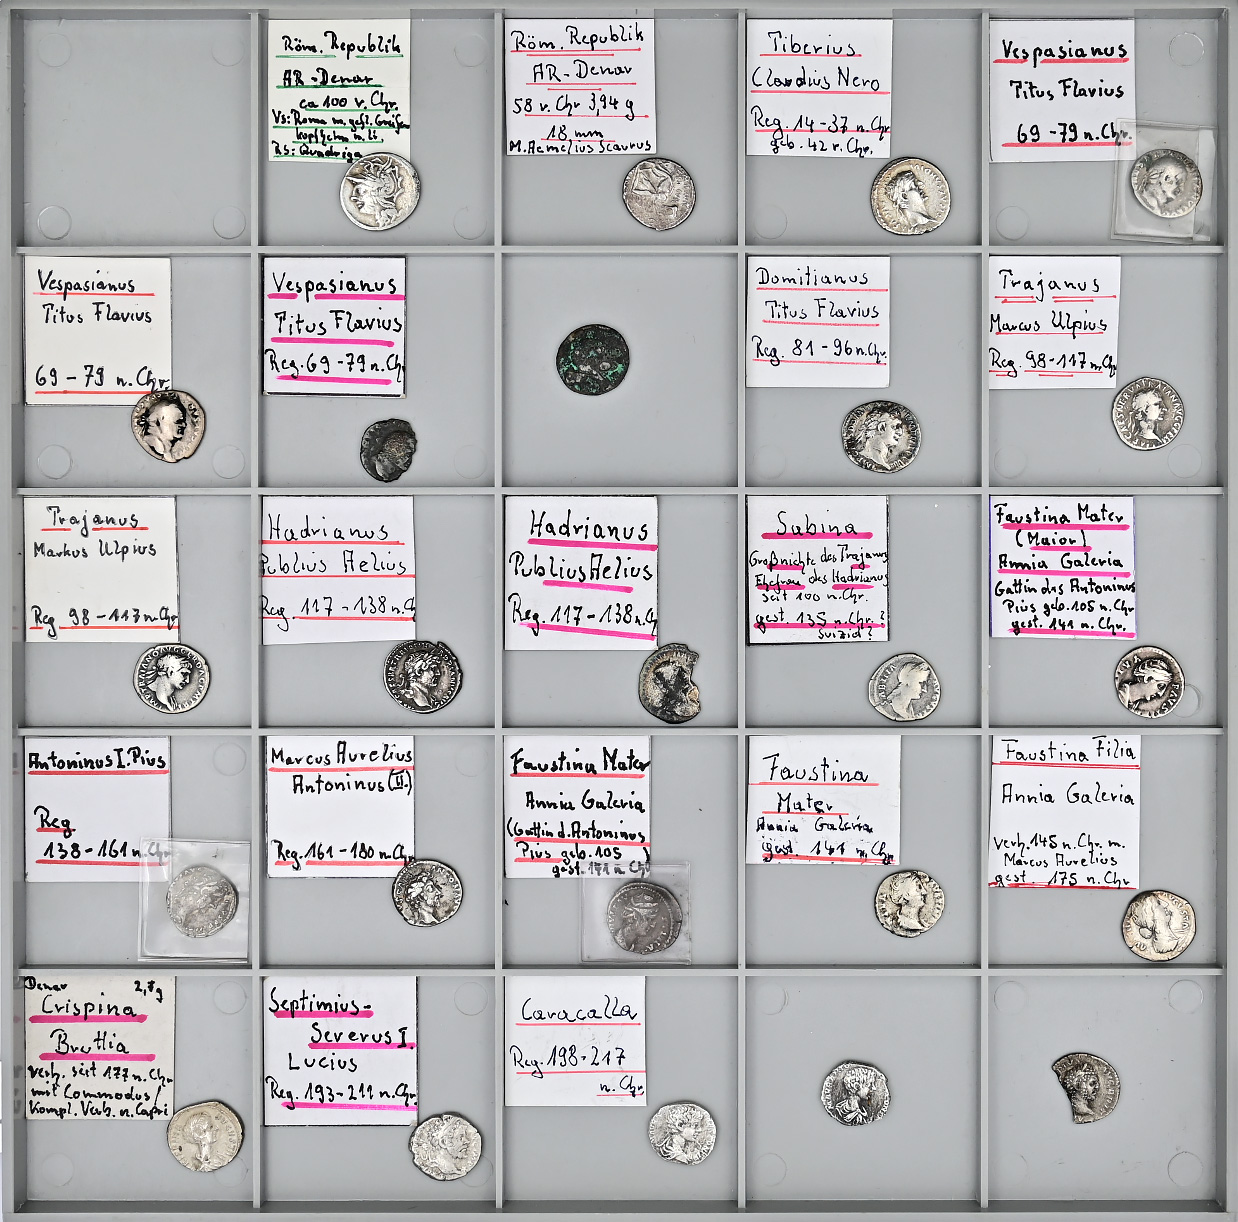 Röm. Republik
AR-Denar
ca 100 v. Chr.
Vs: Roma m. gefl. Greifen
kopfhelm n. li.
Rs: Quadriga
Röm. Republik
AR-Denar
58 v. Chr 3,94 g
18 mm
M. Aemelius Scaurus
Tiberius
Claudius Nero
Reg. 14-37 n. Chr
geb. 42 v. Chr.
Vespasianus
Titus Flavius
69-79 n. Chr.
Vespasianus
Titus Flavius
69-79 n. Chr.
Vespasianus
Titus Flavius
Reg. 69-79 n. Chr.
Domitianus
Titus Flavius
Reg. 81-96 n. Chr.
Trajanus
Marcus Ulpius
Reg. 98-117 n. Chr
Trajanus
Markus Ulpius
Reg 98-117 n. Chr
Hadrianus
Publius Aelius
Reg. 117-138 n. C
Hadrianus
Publius Aelius
Reg. 117-138 n. C
Sabina
Großnichte des Trajanus
Ehefrau des Hadrianus
seit 100 n. Chr.
gest. 135 n. Chr. ?
Suizid ?
Faustina Mater
(Maior)
Annia Galeria
Gattin des Antoninus
Pius geb. 105 n. Chr
gest. 141 n. Chr.
Antoninus I. Pius
Reg
138-161 n. Chr
Marcus Aurelius
Antoninus (II.)
Reg. 161-180 n. Chr
Faustina Mater
Annia Galeria
(Gattin d. Antoninus
Pius geb. 105
gest. 141 n. Chr
Faustina
Mater
Annia Galeria
gest. 141 n. Chr
Faustina Filia
Annia Galeria
verh. 145 n. Chr. m.
Marcus Aurelius
gest. 175 n. Chr
Denar 2,8 g
Crispina
Bruttia
verh. seit 177 n. Chr
mit Commodus/
Kompl. Verb. n. Capri
Septimius-
Severus I.
Lucius
Reg. 193-211 n. Chr
Caracalla
Reg. 198-217
n. Chr